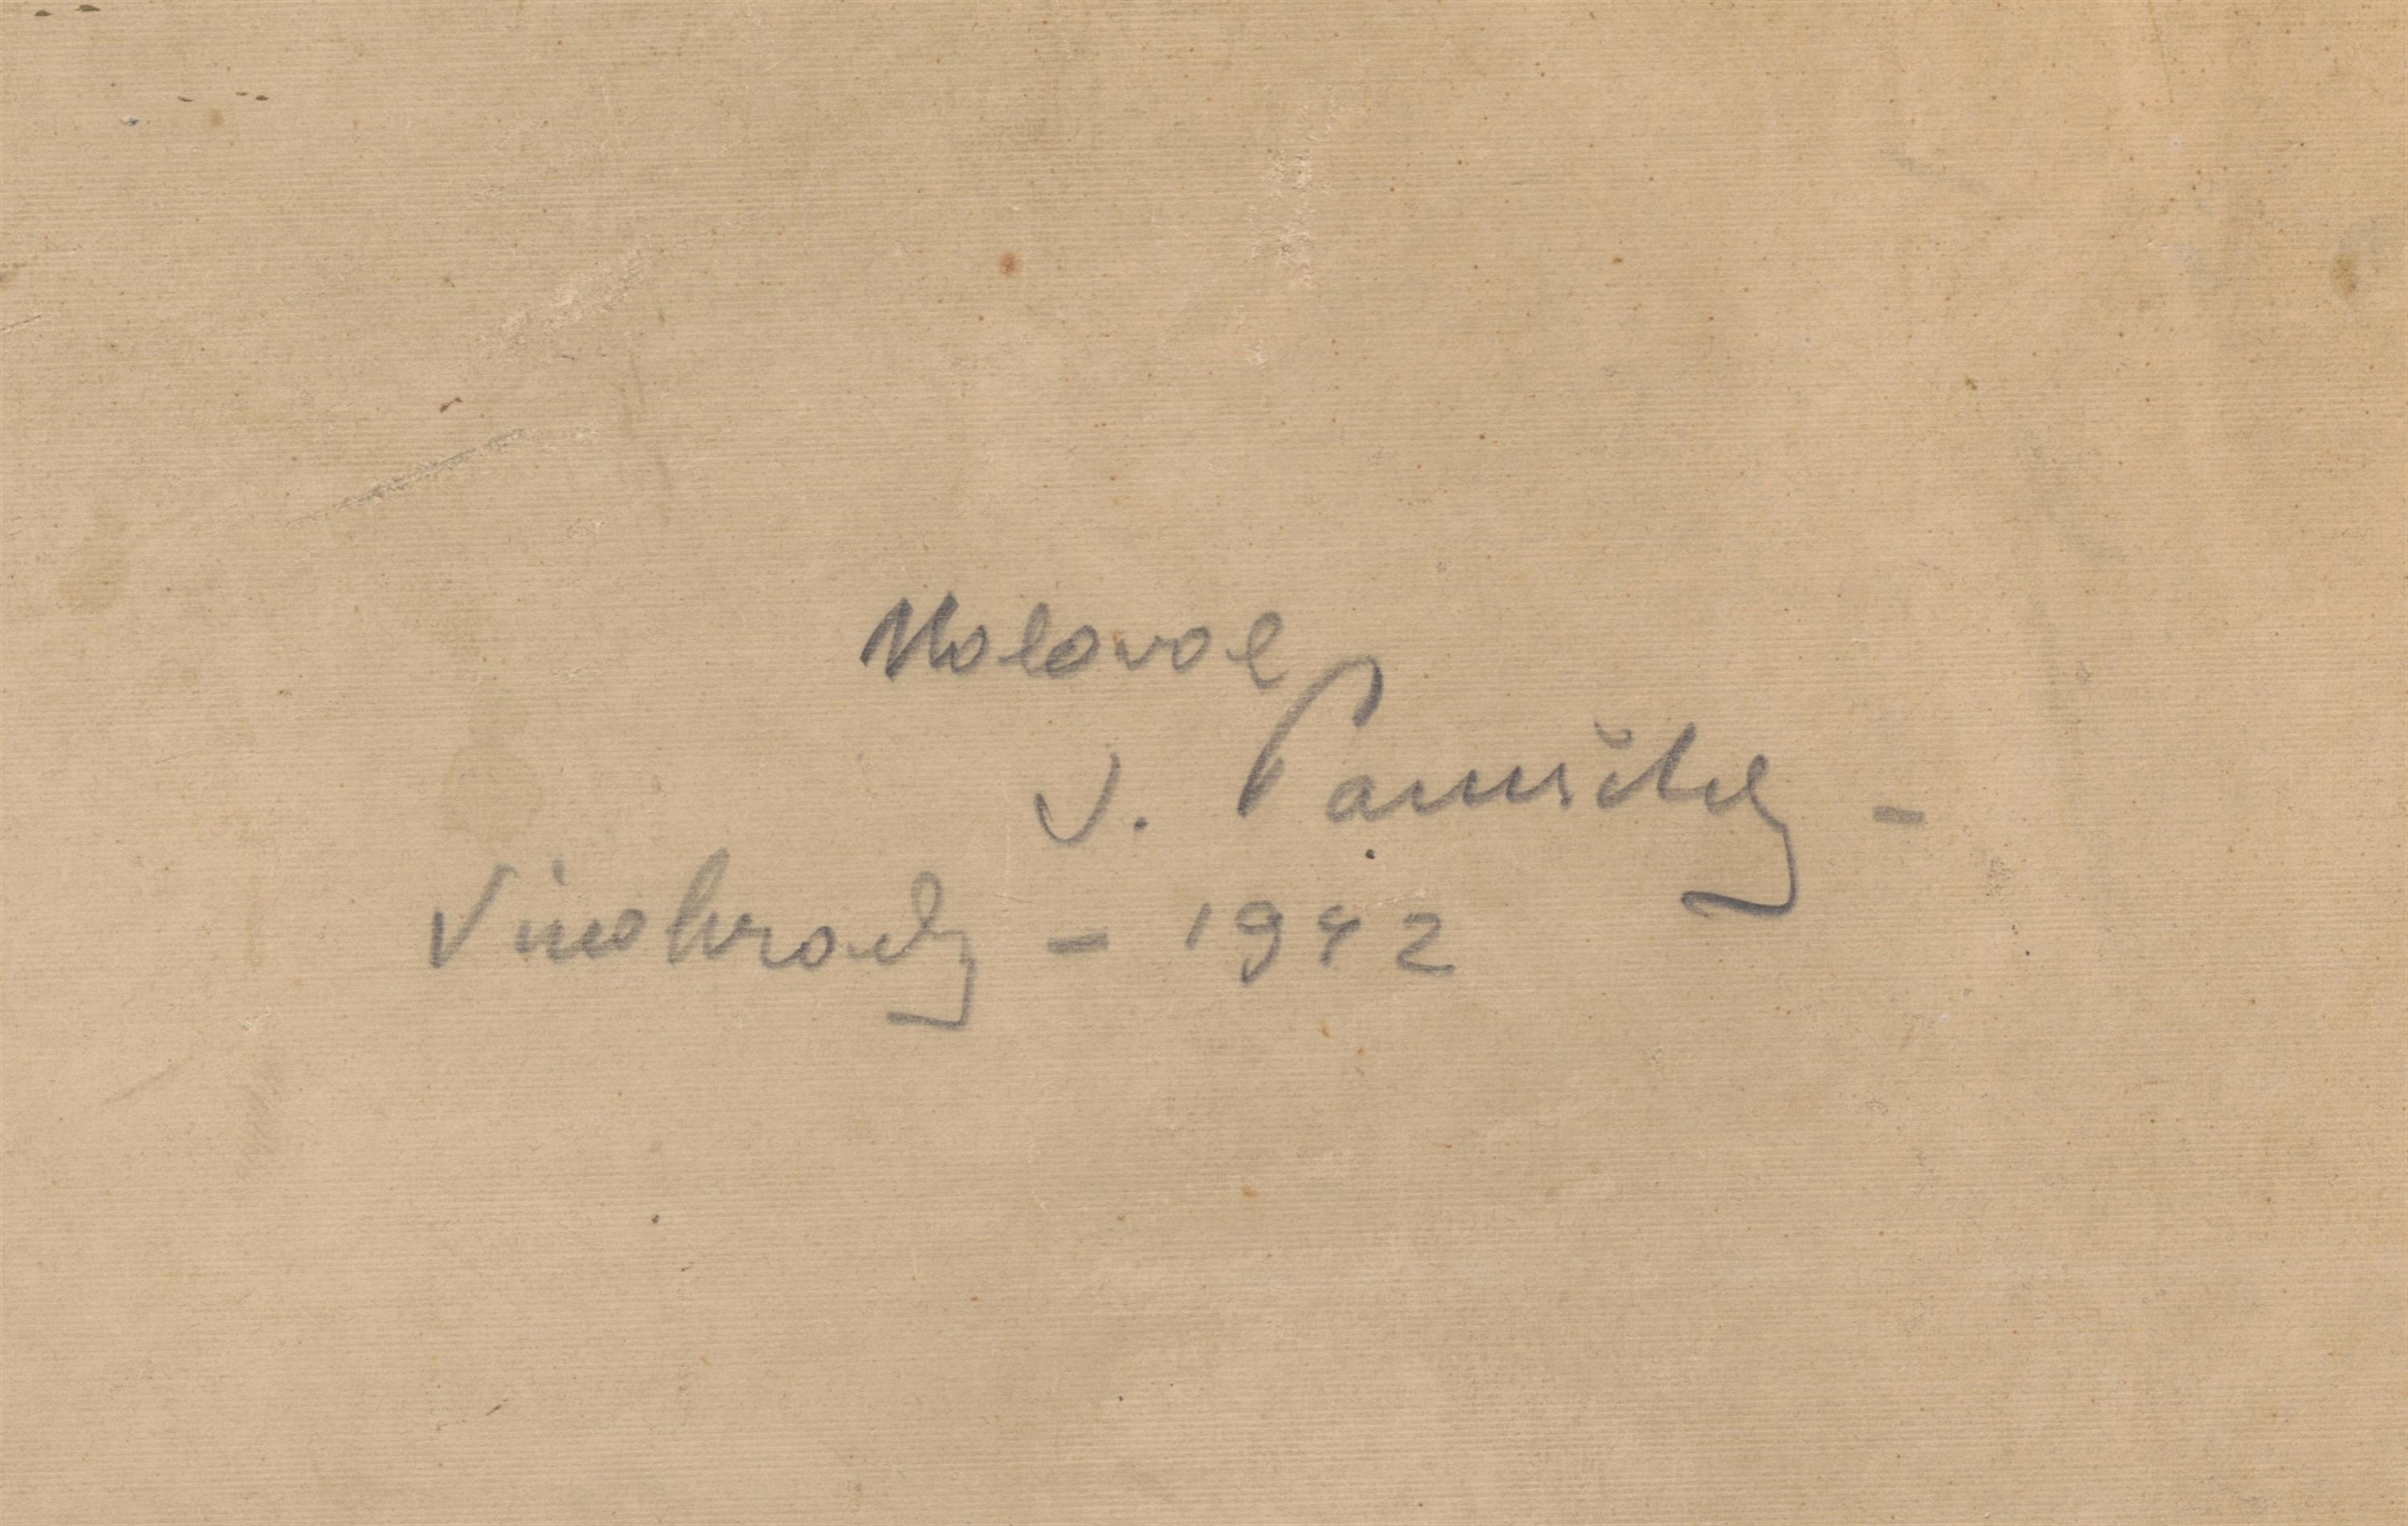 Maloval
J. Panuška -
Vinohrady - 1942